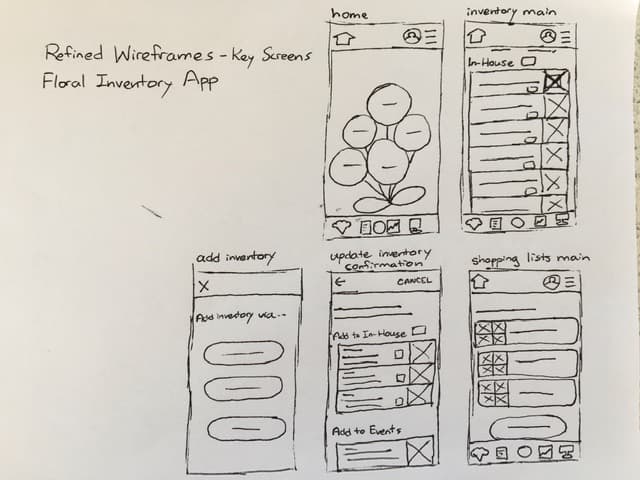 Refined Wireframes - Key Screens
Floral Inventory App
home
inventory main
In-House
add inventory
X
Add inventory via...
update inventory
confirmation
CANCEL
Add to In-House
Add to Events
shopping lists main